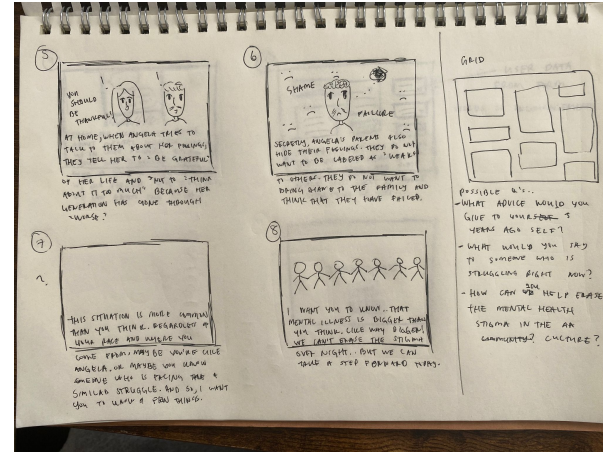 5
YOU
SHOULD
BE
THANKFUL!
AT HOME, WHEN ANGELA TRIES TO
TALK TO THEM ABOUT HER FEELINGS,
THEY TELL HER TO "BE GRATEFUL"
OF HER LIFE AND "NOT TO "THINK
ABOUT IT TOO MUCH" BECAUSE HER
GENERATION HAS GONE THROUGH
"WORSE."
6
SHAME
FAILURE
SECRETLY, ANGELA'S PARENTS ALSO
HIDE THEIR FEELINGS. THEY DO NOT
WANT TO BE LABELED AS "WEAK"
TO OTHERS. THEY DO NOT WANT TO
BRING SHAME TO THE FAMILY AND
THINK THAT THEY HAVE FAILED.
7
?
THIS SITUATION IS MORE COMMON
THAN YOU THINK. REGARDLESS OF
YOUR RACE AND WHERE YOU
COME FROM, MAYBE YOU'RE LIKE
ANGELA, OR MAYBE YOU KNOW
SOMEONE WHO IS FACING THE
SIMILAR STRUGGLE. AND SO, I WANT
YOU TO KNOW A FEW THINGS.
8
I WANT YOU TO KNOW.. THAT
MENTAL ILLNESS IS BIGGER THAN
YOU THINK. LIKE WAY BIGGER!
WE CAN'T ERASE THE STIGMA
OVER NIGHT.. BUT WE CAN
TAKE A STEP FORWARD TODAY.
GRID
POSSIBLE Q's..
- WHAT ADVICE WOULD YOU
GIVE TO YOURSELF 5
YEARS AGO SELF?
- WHAT WOULD YOU SAY
TO SOMEONE WHO IS
STRUGGLING RIGHT NOW?
- HOW CAN YOU HELP ERASE
THE MENTAL HEALTH
STIGMA IN THE AA
COMMUNITY? CULTURE?